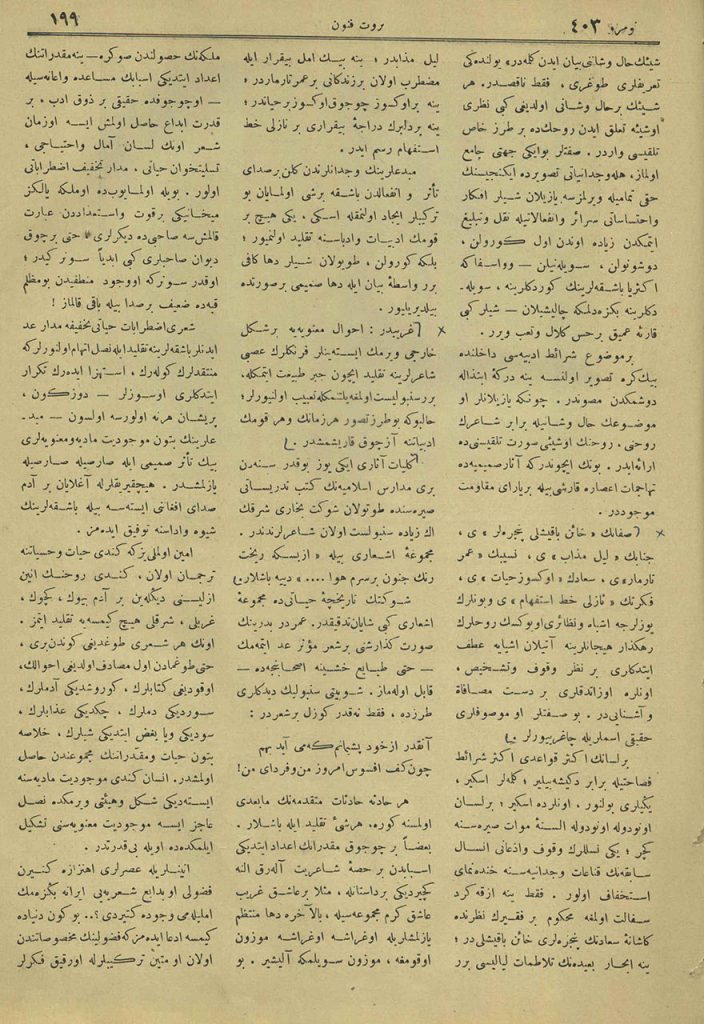 نومرو ٤٠٣
ثروت فنون
١٩٩
شیئك حال وشاننی بیان ایدن كله‌در» یولنده‌كی
تعریفلری طوغری ، فقط ناقصدر. هر
شیئك بر حال وشانی اولدیغی كبی نظری
اوشیئه تعلق ایدن روحك‌ده بر طرز خاص
تلقیسی واردر . صفتلر بوایكی جهتی جامع
اولماز، هله‌وجدانیاتی تصویرده ایكنجیسنك
حقی تمامیله ویرلمزسه یازیلان شیلر افكار
واحتساساتی سرائر وانفعالاتیله نقل وتبلیغ
ایتمكدن زیاده اوندن اول كورولن ،
دوشونولن ، سویله‌نیلن — وواسفاكه
اكثریا باشقه‌لرینك كوردكلرینه ، سویله-
دكلرینه بكزه‌دلمكه چالیشیلان — شیلر كبی
قارئه عمیق بر حس كلال وتعب ویرر .
بر موضوع شرائط ادبیه‌سی داخلنده
بیك كره تصویر اولنسه ینه دركهٔ ابتذاله
دوشمكدن مصوندر . چونكه یازیلانلر او
موضوعك حال وشانیله برابر شاعرك
روحنی ، روحنك اوشیئی صورت تلقیسنی‌ده
ارائه‌ایدر . بونك ایچوندركه آثار صمیمیه‌ده
تهاجمات اعصاره قارشی بیله بر پارای مقاومت
موجوددر .
صفانك « خائن باقیشلی پنجره‌لر » ی ،
جنابك « لیل مذاب » ی ، نسیبك « عمر
تارمار»ی ، سعادك « اوكسوز حیات » ی ،
فكرتك « نازلی خط استفهام » ی وبونلرك
یوزلرجه اشباه ونظائری اویوكسك روحلرك
رهكذار هیجانلرینه آتیلان اشیایه عطف
ایتدكاری بر نظر وقوف وتشخیص ،
اونلره اوزاتدقلری بر دست مصافاة
و آشنایی‌در . بو صفتلر او موصوفلری
حقیقی اسملریله چاغیریورلر .
بر لسانك اكثر قواعدی اكثر شرائط
فصاحتیله برابر دكیشه‌بیلیر ؛ كله‌لر اسكیر ،
یكیلری بولنور ، اونلرده اسكیر ؛ بر لسان
اونودوله اونودوله السنهٔ موات صیره‌سنه
كچر ؛ یكی نسللرك وقوف واذعانی انسال
سابقه‌نك قناعات وجدانیه‌سنه خنده‌نمای
استخفاف اولور . فقط ینه ازقه‌كرد
سفالت اولمغه محكوم بر فقیرك نظرنده
كاشانهٔ سعادتك پنجره‌لری خائن باقیشلی‌در ؛
ینه ابحار بعیده‌نك تلاطمات لیالیسی برر
لیل مذابدر ؛ ینه بیك امل بیقرار ایله
مضطرب اولان بر زندكانی بر عمر تارماردر ؛
ینه بر اوكسوز چوجوق اوكسوز بر حیاتدر ؛
ینه بر دلبرك دراجهٔ بیقراری بر نازلی خط
استفهام رسم ایدر .
مبدعلرینك وجدانلرندن كلن بر صدای
تأثر و انفعالدن باشقه برشی اولمایان بو
تركیبلر ایجاد اولنمقله اسكی ، یكی هیچ بر
قومك ادبیات وادباسنه تقلید اولنمیور ؛
بلكه كورولن ، طویولان شیلر دها كافی
برر واسطهٔ بیان ایله دها صمیمی بر صورتده
بیلدیریلیور .
غریبدر : احوال معنویه‌یه بر شكل
خارجی ویرمك ایسته‌ینلر فرنكلرك عصبی
شاعرلرینه تقلید ایچون جبر طبیعت ایتمكله،
بر رسنبولیست اولمغه‌یلتنمكله تعییب اولنیورلر؛
حالبوكه بو طرز تصور هر زمانك وهر قومك
ادبیاتنه آز چوق قاریشمشدر .
كلیات آثاری ایكی یوز بوقدر سنه‌دن
بری مدارس اسلامیه‌نك كتب تدریساتی
صیره‌سنده طوتولان شوكت بخاری شرقك
اك زیاده سنبولیست اولان شاعرلرندندر .
مجموعهٔ اشعاری بیله « ازبسكه ریخت
رنك جنون بر سرم هوا .... » دییه باشلار .
شوكتك تاریخچهٔ حیاتی‌ده مجموعهٔ
اشعاری كبی شایان‌تدقیقدر . عمر در بدرینك
صورت كذارشنی بر شعر مؤثر عد ایتمه‌مك
— حتی طبایع خشینه اصحابنجه‌ده —
قابل اوله‌ماز . شو بیتی سنبولیك دیدكلری
طرزده ، فقط نه‌قدر كوزل بر شعردر :
آنقدر از خود پشیمانم كه می آید بهم
چون كف افسوس امروز من و فردای من!
هر حادثه حادثات متقدمه‌نك مابعدی
اولمسنه كوره، هرشئ تقلید ایله باشلار .
بعضاً بر چوجوق مقدراتك اعداد ایتدیكی
اسبابدن بر حصهٔ شاعریت آله‌رق النه
كچیردیكی بر داستانله ، مثلا بر عاشق غریب
عاشق كرم مجموعه‌سیله ، بالآخره دها منتظم
یازلمشلریله اوغراشه اوغراشه موزون
اوقومغه ، موزون سویلمكه آلیشیر . بو
ملكه‌نك حصولندن صوكره — ینه مقدراتنك
اعداد ایتدیكی اسبابك مساعده واعانه‌سیله
— اوچوجوقده حقیقی بر ذوق ادب ، بر
قدرت ابداع حاصل اولمش ایسه اوزمان
شعر اونك لسان آمال واحتیاجی ،
تسلیتخوان حیاتی ، مدار تخفیف اضطراباتی
اولور . بویله اولمایوب‌ده اوملكه یالكز
میخانیكی بر قوت واستعداددن عبارت
قالمش‌سه صاحبی‌ده دیكرلری حتی بر چوق
دیوان صاحبلری كبی ابدیاً سونر كیدر ؛
اوقدر سونركه اووجود منطفیدن بو مظلم
قبه‌ده ضعیف بر صدا بیله باقی قالماز !
شعری اضطرابات حیاتی تخفیفه مدار عد
ایدنلر باشقه‌لرینه تقلید ایله نصل اتهام اولنورلركه
منتقدلرك كوله‌رك ، استهزا ایده‌رك تكرار
ایتدكلری اوسوزلر — دوزكون ،
پریشان هر نه اولورسه اولسون — مبد-
علرینك بتون موجودیت مادیه‌ومعنویه‌لری
بیك تأثر صمیمی ایله صارصیله صارصیله
یازلمشدر . هیچقیریقلرله آغلایان بر آدم
صدای افغاننی ایسته‌سه بیله باشقه‌لرینك
شیوه واداسنه توفیق ایده‌مز .
امین اولملی یزكه كندی حیات وحسیاتنه
ترجمان اولان ، كندی روحنك انین
ازلیسنی دیكله‌ین بر آدم بیوك ، كچوك ،
غربلی ، شرقلی هیچ كیمسه‌یه تقلید ایتمز .
اونك هر شعری طوغدیغی كوندن‌بری ،
حتی طوغمادن اول مصادف اولدیغی احوالك،
اوقودیغی كتابلرك ، كوروشدیكی آدملرك ،
سوردیكی دملرك ، چكدیكی عذابلرك ،
سودیكی ویا بغض ایتدیكی شیلرك ، خلاصه
بتون حیات ومقدراتنك مجموعندن حاصل
اولمشدر . انسان كندی موجودیت مادیه‌سنه
ایسته‌دیكی شكل وهیئتی ویرمكده نصل
عاجز ایسه موجودیت معنویه‌سنی تشكیل
ایلمكده‌ده اویله بی‌قدرتدر .
انینلریله عصرلری اهتزازه كتیرن
فضولی اوبدایع شعریه‌یی ایرانه بكزه‌مك
املیله‌می وجوده كتیردی ؟.. بوكون دنیاده
كیمسه ادعا ایده‌مزكه فضولینك مخصوصاتندن
اولان او متین تركیبلرله اورقیق فكرلر